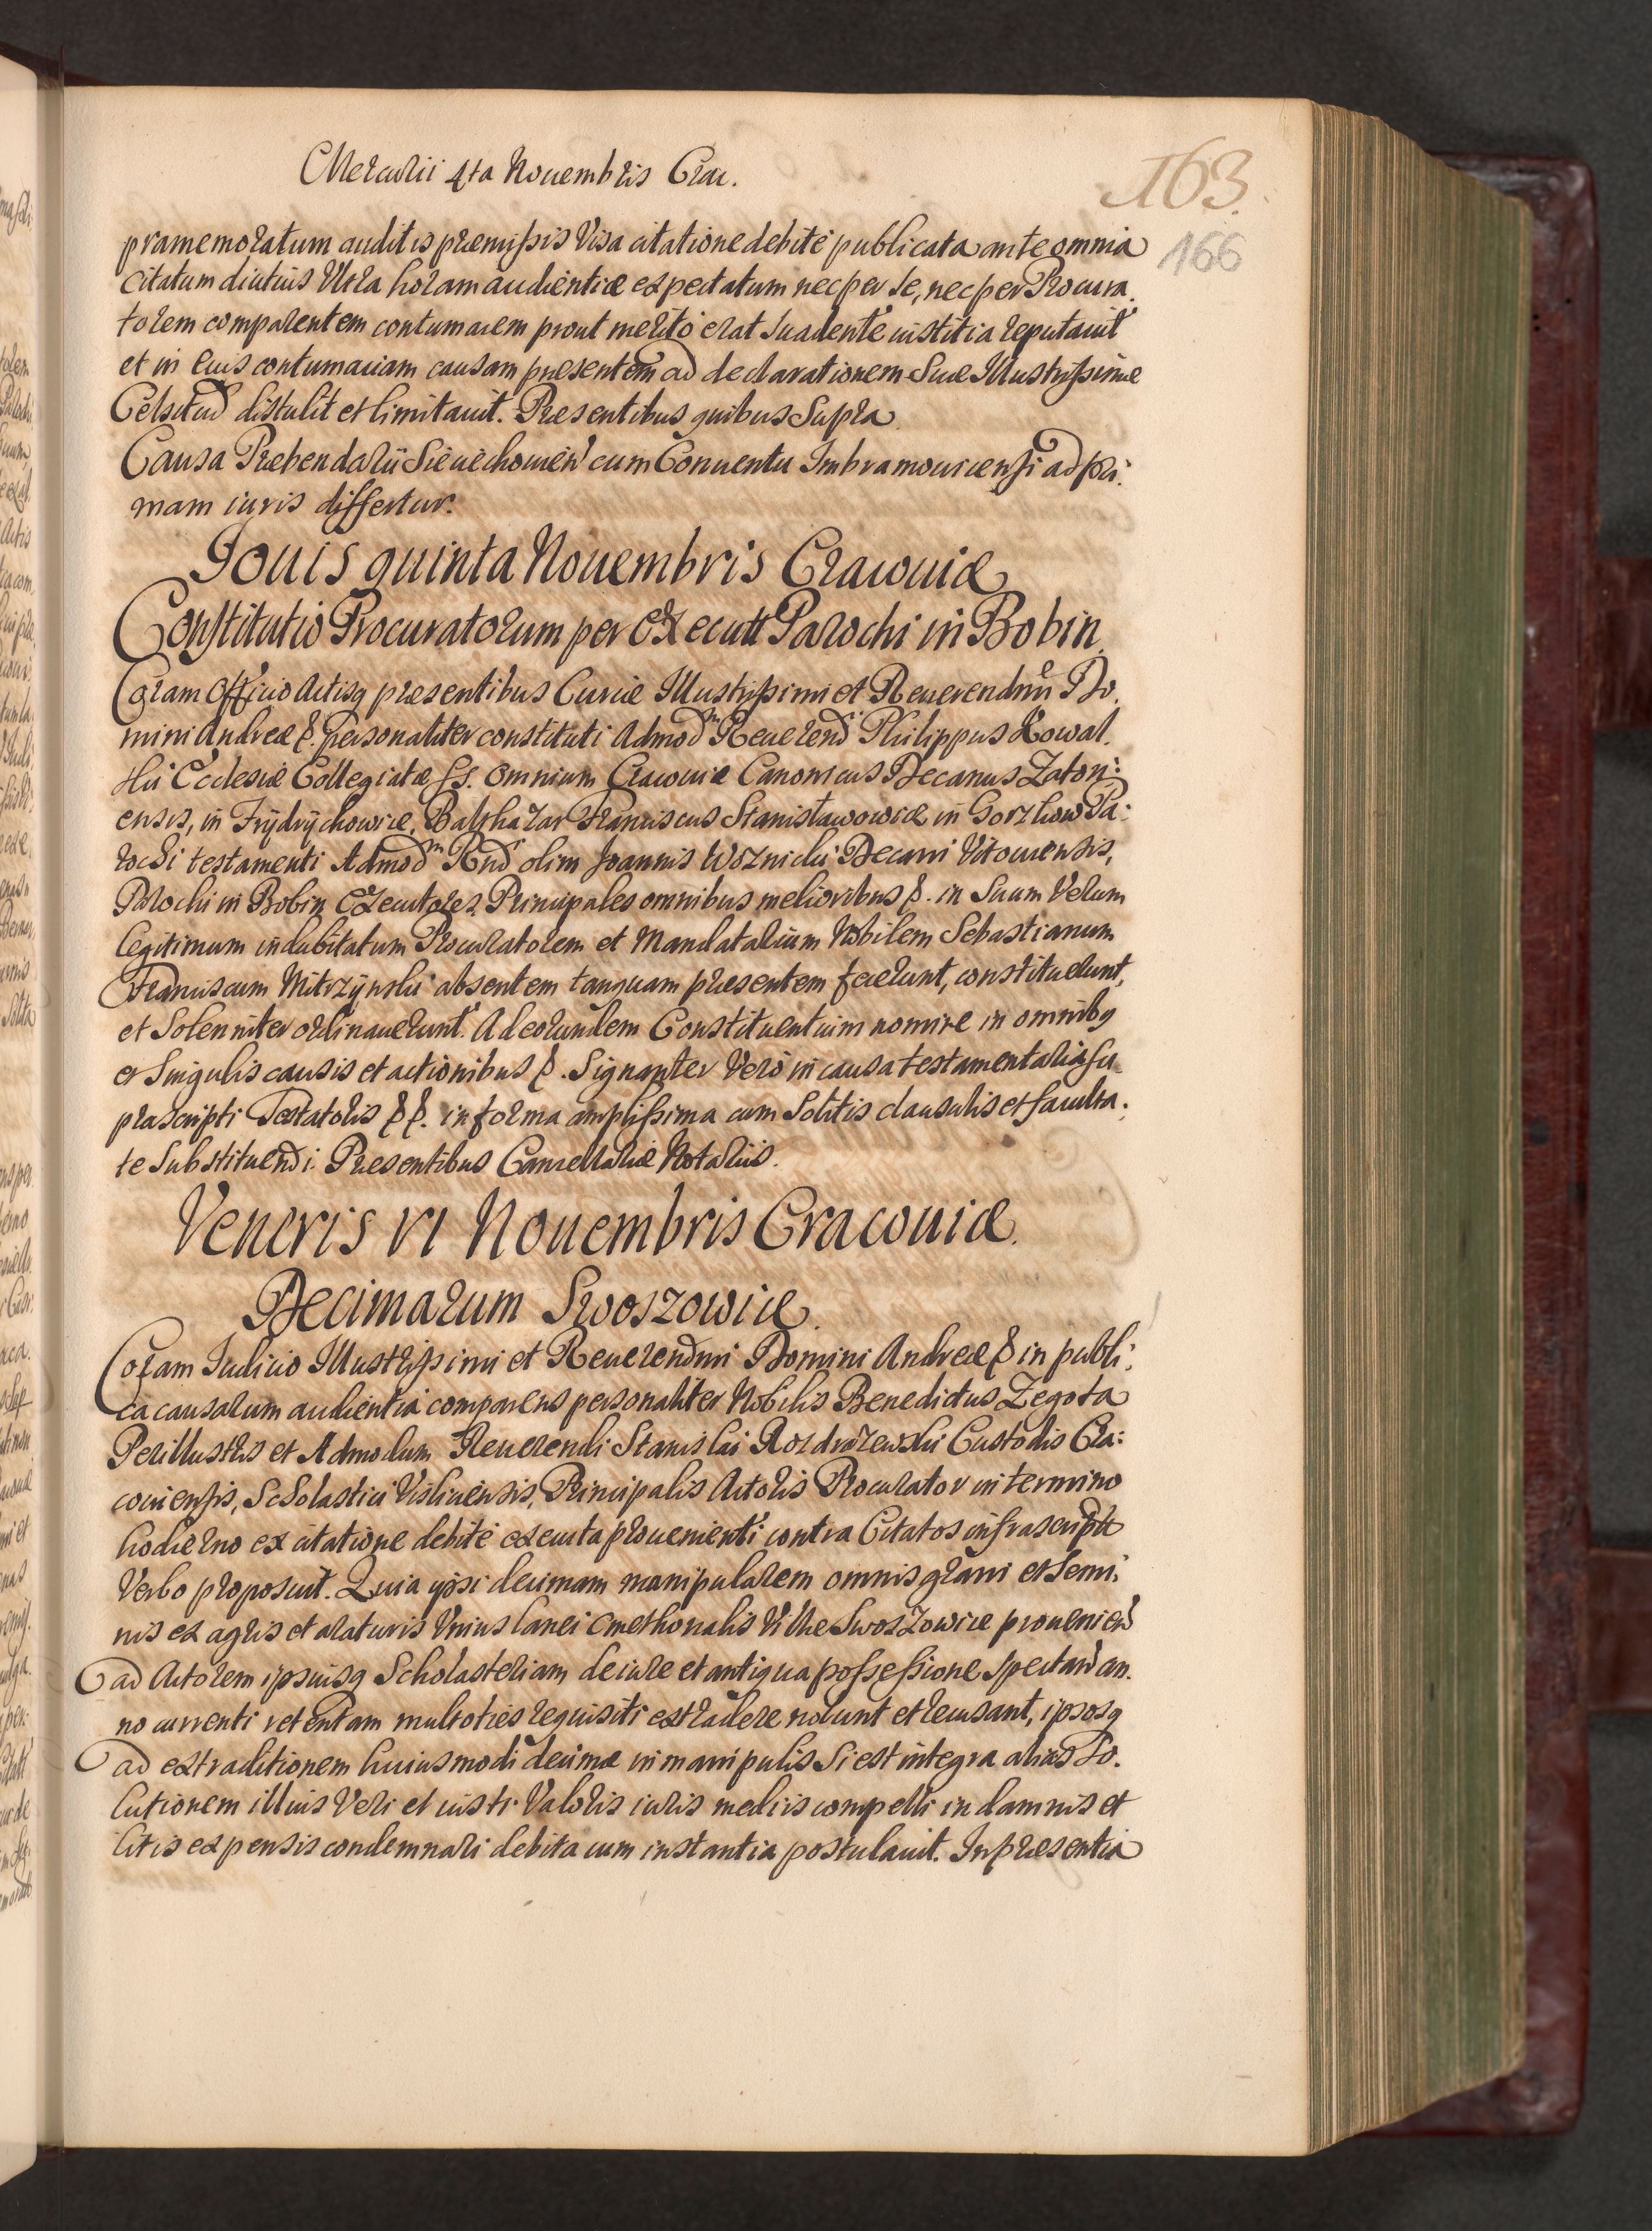 Mercurii 4ta Nouembris Crac.
163.
166
pramemoratum auditis præmissis Visa citatione debitè publicata ante omnia
Citatum diutius Vltra horam audientiæ expectatum nec per se, nec per Procura.
torem comparentem contumacem prout meritò erat suadente iustitia reputauit
et in eius contumaciam causam presentem ad declarationem Suæ Illustrissimæ
Celsitud distulit et limitauit. Presentibus quibus Supra
Causa Præbendarii Sieciechouien cum Conuentu Imbramouicensi ad pri:
mam iuris differtur.
Jouis quinta Nouembris Cracouiæ
Constitutio Procuratorum per Executt Parochi in Bobin.
Coram Officio Actisq presentibus Curiæ Illustrissimi et Reuerendmi Do.
mini Andreæ &. personaliter constituti Admod Reuerend Philippus Kowal.
ski Ecclesiæ Collegiatæ SS. Omnium Cracouiæ Canonicus Decanus Zator:
ensis, in Frydrychowice, Balthazar Franciscus Stanisławowicz in Gorzkow Pa:
rochi testamenti Admod Rnd olim Joannis Woznicki Decani Vitouiensis,
Parochi in Bobin Executores Principales omnibus melioribus &. in Suum Verum
legitimum indubitatum Procuratorem et Mandatarium Nobilem Sebastianum
Franciscum Mitrzynski absentem tanquam presentem fecerunt, constituerunt,
et Solenniter ordinauerunt. Ad eorundem Constituentium nomine in omnibq
et Singulis causis et actionibus &. Signanter Verò in causa testamentaria su
prascripti Testatoris &&. in forma amplissima cum Solitis clausulis et faculta:
te Substituendi. Presentibus Cancellariæ Notariis.
Veneris VI Nouembris Cracouiæ.
Decimarum Swoszowice.
Coram Iudicio Illustrissimi et Reuerendmi Domini Andreæ & in publi:
ca causarum audientia comparens personaliter Nobilis Benedictus Zegota
Perillustris et Admodum Reuerendi Stanislai Rozdrazewski Custodis Cra:
couiensis, Scholastici Vislicensis, Principalis Actoris Procurator in termino
hodierno ex citatione debitè executa prouenienti contra Citatos infrascriptt
Verbo proposuit. Quia ipsi decimam manipularem omnis grani et semi:
nis ex agris et araturis Vnius lanei Cmethonalis Villæ Swoszowice prouenien
ad Actorem ipsiusq Scholasteriam de iure et antiqua possessione spectan an.
no currenti retentam multoties requisiti extradere nolunt et recusant, ipsosq
ad extraditionem huiusmodi decimæ in manipulis si est integra alias so.
lutionem illius Veri et iusti Valoris iuris mediis compelli in damnis et
litis expensis condemnari debita cum instantia postulauit. In presentia